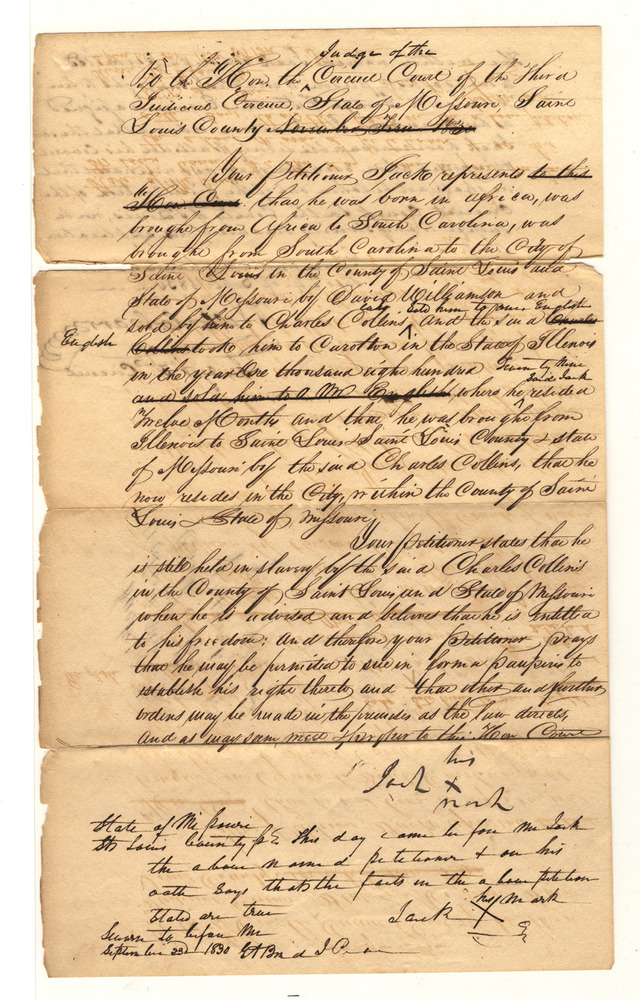 Judge of the
To the Hon. the Circuit Court of the Third
Judicial Circuit, State of Missouri, Saint
Louis County November Term 1830
Your Petitioner Jack represents to this
Hon. Court that he was born in Africa, was
brought from Africa to South Carolina, was
brought from South Carolina to the City of
Saint Louis in the County of Saint Louis and
State of Missouri by David Williamson and
sold by him to Charles Collins, and the said Charles
sold him to English
English
Collins took him to Carolton in the State of Illinois
in the year One thousand eight hundred Twenty Nine
and sold him to a Mr English where he resided
Said Jack
Twelve Months and that he was brought from
Illinois to Saint Louis Saint Louis County & state
of Missouri by the said Charles Collins, that he
now resides in the City, within the County of Saint
Louis & State of Missouri,
Your Petitioner states that he
is still held in slavery by the said Charles Collins
in the County of Saint Louis, and State of Missouri
when he is advised and believes that he is entitled
to his freedom: And therefore your Petitioner prays
that he may be permitted to sue in forma pauperis to
establish his right thereto and that other and further
orders may be made in the premises as the law directs,
and as may seem meet & proper to this Hon Court
his
Jack X
mark
State of Missouri
St Louis County Ss This day came before me Jack
the above named petitioner & on his
oath says that the facts in the above petition
stated are true
his mark
Jack X
Sworn to before Me
September 23 1830